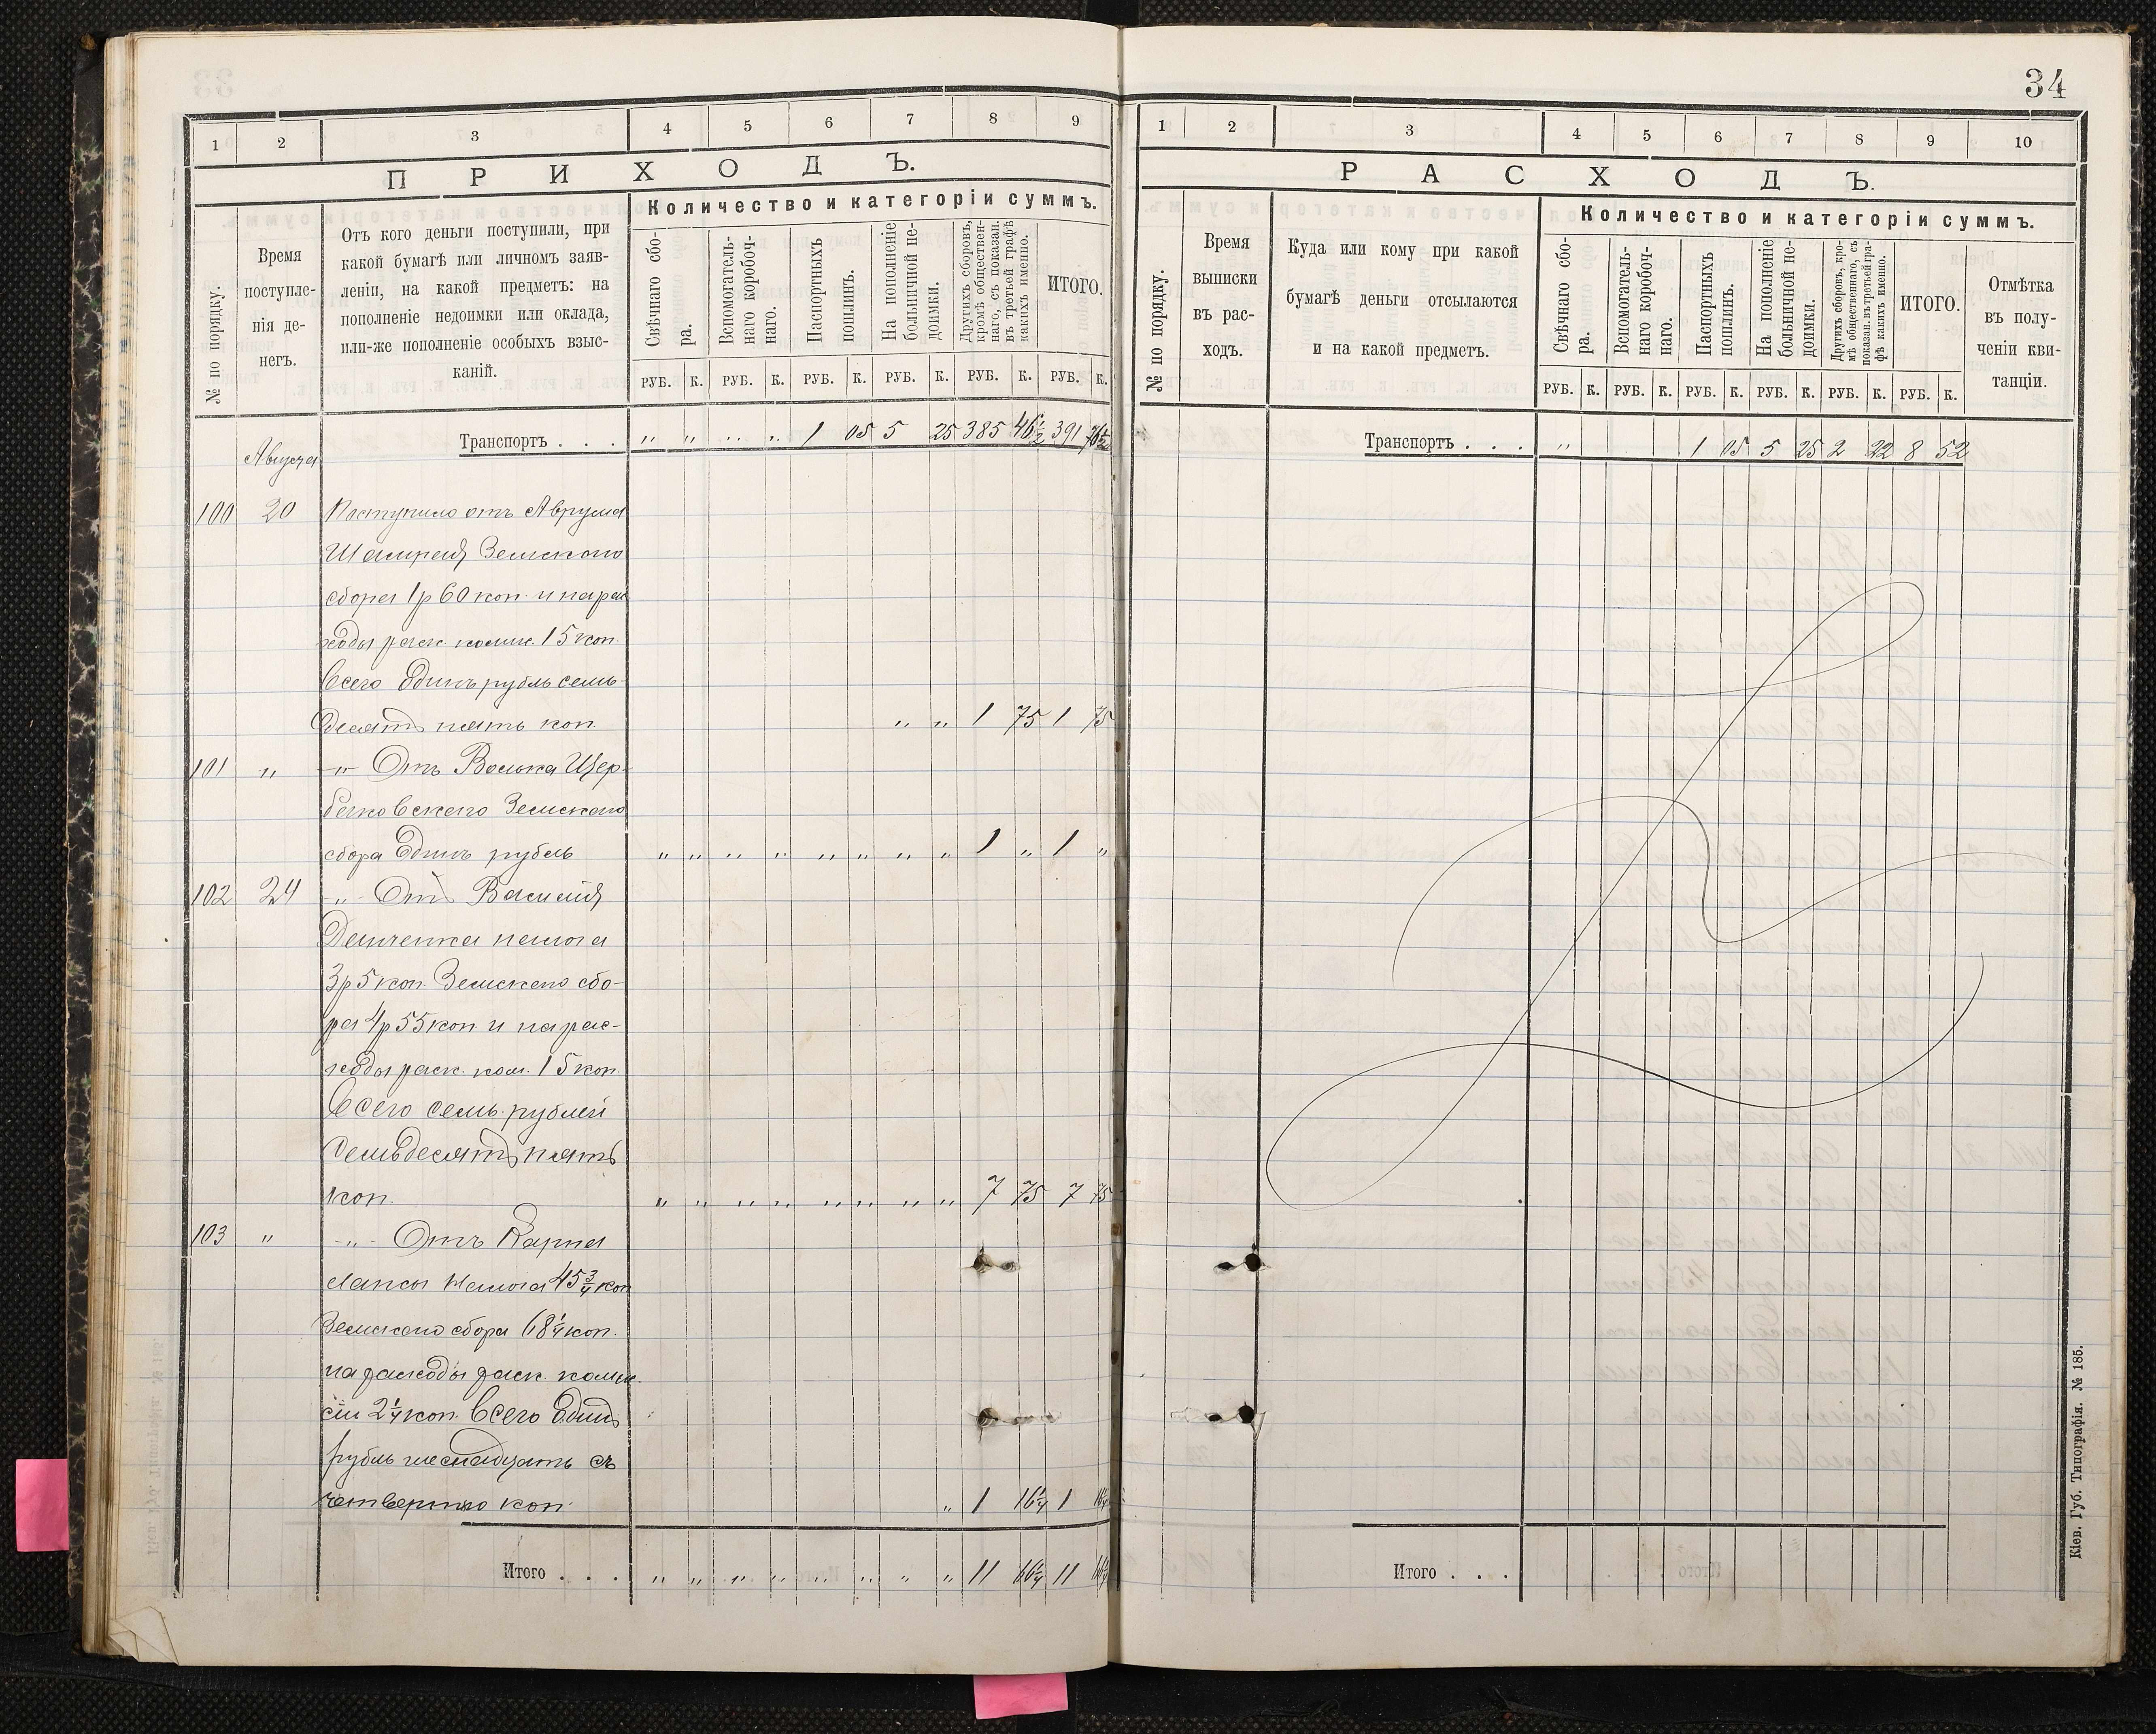 34
1 2 3 4 5 6 7 8 9
ПРИХОДЪ.
№ по порядку.
Время
поступле-
нія де-
негъ.
Отъ кого деньги поступили, при
какой бумагѣ или личномъ заяв-
леніи, на какой предметъ: на
пополненіе недоимки или оклада,
или-же пополненіе особыхъ взыс-
каній.
Количество и категоріи суммъ.
Свѣчнаго сбо-
ра.
Вспомогатель-
наго коробоч-
наго.
Паспортныхъ
пошлинъ.
На пополненіе
больничной не-
доимки.
Другихъ сборовъ,
кромѣ обществен-
наго, съ показан.
въ третьей графѣ
какихъ именно.
ИТОГО.
РУБ. К. РУБ. К. РУБ. К. РУБ. К. РУБ. К. РУБ. К.
Транспортъ . . . " " " " 1 05 5 25 385 46½ 391 76½
Августа
100 20 Поступило отъ Аврума
Шамрая Земскаго
сбора 1р 60 коп. и на рас
ходы раск. комис. 15 коп.
Всего Одинъ рубль семь-
десятъ пять коп. " " 1 75 1 75
101 " -"- Отъ Волька Щер-
баковскаго Земскаго
сбора Одинъ рубль " " " " " " " " 1 " 1 "
102 24 -"- Отъ Василія
Данченка налога
3р 5 коп. Земскаго сбо-
ра 4р 55 коп. и на рас-
ходы раск. ком. 15 коп.
Всего семь рублей
семьдесятъ пять
коп. " " " " " " " " 7 75 7 75
103 " -"- Отъ Карпа
Лапсы налога 45¾ коп
Земскаго сбора 68¼ коп.
на расходы раск. комис.
сіи 2¼ коп. Всего Одинъ
рубль шеснадцать съ
четвертью коп. " 1 16¼ 1 16¼
Итого . . . " " " " " " " " 11 66¼ 11 66¼
1 2 3 4 5 6 7 8 9 10
РАСХОДЪ.
№ по порядку.
Время
выписки
въ рас-
ходъ.
Куда или кому при какой
бумагѣ деньги отсылаются
и на какой предметъ.
Количество и категоріи суммъ.
Свѣчнаго сбо-
ра.
Вспомогатель-
наго коробоч-
наго.
Паспортныхъ
пошлинъ.
На пополненіе
больничной не-
доимки.
Другихъ сборовъ, кро-
мѣ общественнаго, съ
показан. въ третьей гра-
фѣ какихъ именно.
ИТОГО.
Отмѣтка
въ полу-
ченіи кви-
танціи.
РУБ. К. РУБ. К. РУБ. К. РУБ. К. РУБ. К. РУБ. К.
Транспортъ . . . " 1 05 5 25 2 22 8 52
Итого . . .
Кіев. Губ. Типографія. № 185.